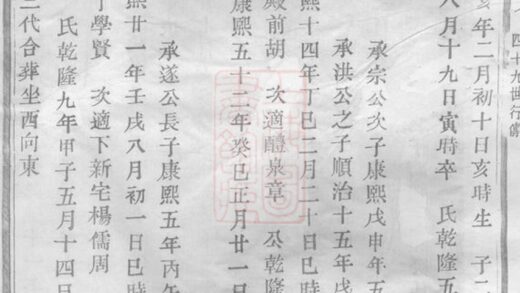 四十九世行
亥年二月初十日亥時生　子二
八月十九日寅時卒　氏乾隆五
承宗公次子康熙戊申年五
承洪公之子順治十五年戊
熙十四年丁巳二月二十日巳時
殿前胡　次適醴泉章　公乾隆
康熙五十二年癸巳正月廿一日
承遂公長子康熙五年丙午
熙廿一年壬戌八月初一日巳時
丁學賢　次適下新宅楊儒周
氏乾隆九年甲子五月十四日
二代合葬坐西向東